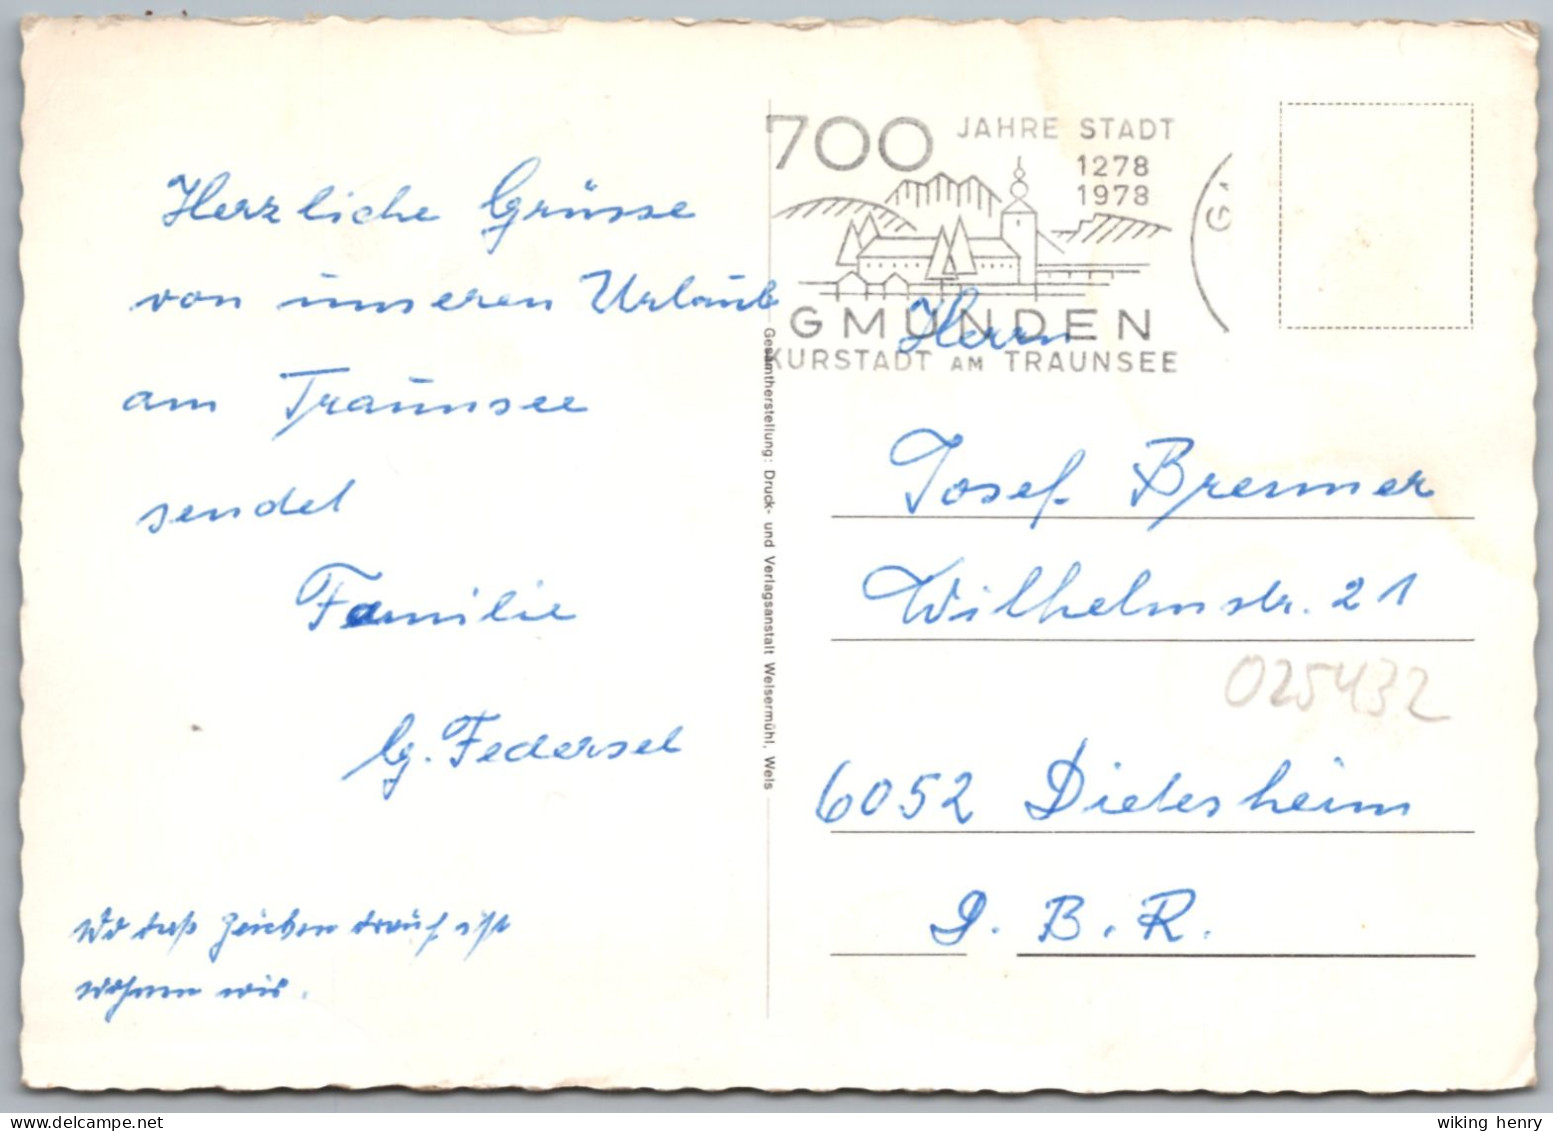 Herzliche Grüsse
von unseren Urlaub
am Traunsee
sendet
Familie
G. Federsel
Wo das Zeichen drauf ist
wohnen wir.
Gesamtherstellung: Druck- und Verlagsanstalt Welsermühl, Wels
700 JAHRE STADT
1278
1978
GMUNDEN
KURSTADT AM TRAUNSEE
G
Herrn
Josef Brenner
Wilhelmstr. 21
025432
6052 Dietesheim
D. B. R.
wiking henry